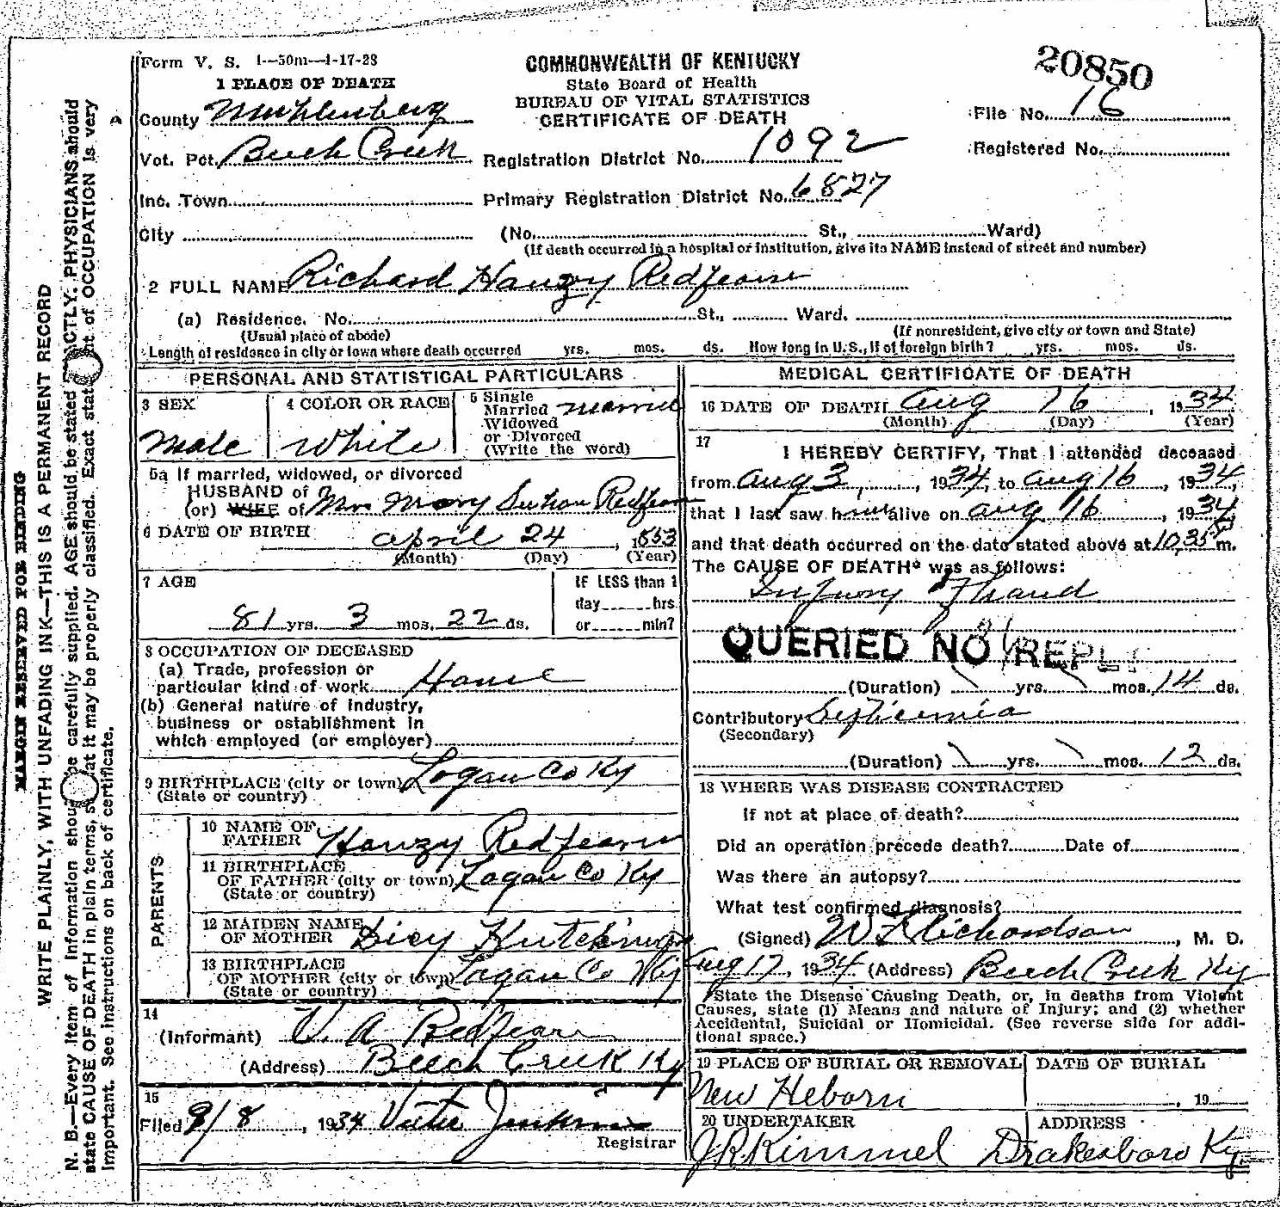 Form V. S. 1—50m—4-17-28
1 PLACE OF DEATH
County Muhlenberg
Vot. Pct. Beech Creek
Inc. Town
City
COMMONWEALTH OF KENTUCKY
State Board of Health
BUREAU OF VITAL STATISTICS
CERTIFICATE OF DEATH
Registration District No. 1092
Primary Registration District No. 6827
(No. St., Ward)
(If death occurred in a hospital or institution, give its NAME instead of street and number)
20850
File No. 16
Registered No.
2 FULL NAME Richard Hanzy Redfearn
(a) Residence. No. St., Ward.
(Usual place of abode) (If nonresident, give city or town and State)
Length of residence in city or town where death occurred yrs. mos. ds. How long in U.S., if of foreign birth? yrs. mos. ds.
PERSONAL AND STATISTICAL PARTICULARS
3 SEX
Male
4 COLOR OR RACE
White
5 Single
Married
Widowed
or Divorced
(Write the word)
married
5a If married, widowed, or divorced
HUSBAND of
(or) WIFE of Mrs Mary Redfearn
6 DATE OF BIRTH april 24, 1853
(Month) (Day) (Year)
7 AGE
81 yrs. 3 mos. 22 ds.
IF LESS than 1
day hrs
or min?
8 OCCUPATION OF DECEASED
(a) Trade, profession or
particular kind of work
(b) General nature of industry,
business or establishment in
which employed (or employer)
9 BIRTHPLACE (city or town) Logan Co Ky
(State or country)
PARENTS
10 NAME OF
FATHER Hanzy Redfearn
11 BIRTHPLACE
OF FATHER (city or town) Logan Co Ky
(State or country)
12 MAIDEN NAME
OF MOTHER Dicy Hutchings
13 BIRTHPLACE
OF MOTHER (city or town) Logan Co Ky
(State or country)
14
(Informant) V. A Redfearn
(Address) Beech Creek Ky
15
Filed 8/8, 1934
Registrar
MEDICAL CERTIFICATE OF DEATH
16 DATE OF DEATH Aug 16, 1934
(Month) (Day) (Year)
17
I HEREBY CERTIFY, That I attended deceased
from aug 3, 1934, to aug 16, 1934,
that I last saw him alive on aug 16, 1934
and that death occurred on the date stated above at 10,35 m.
The CAUSE OF DEATH* was as follows:
Injury of hand
QUERIED NO REPLY
(Duration) yrs. mos. 14 ds.
Contributory Septicemia
(Secondary)
(Duration) yrs. mos. 12 ds.
18 WHERE WAS DISEASE CONTRACTED
If not at place of death?
Did an operation precede death? Date of
Was there an autopsy?
What test confirmed diagnosis?
(Signed) W L Richardson, M. D.
Aug 17, 1934 (Address) Beech Creek Ky
*State the Disease Causing Death, or, in deaths from Violent
Causes, state (1) Means and nature of Injury; and (2) whether
Accidental, Suicidal or Homicidal. (See reverse side for addi-
tional space.)
19 PLACE OF BURIAL OR REMOVAL
New Heborn
DATE OF BURIAL
, 19
20 UNDERTAKER
J R Kimmel
ADDRESS
Drakesboro Ky
MARGIN RESERVED FOR BINDING
WRITE PLAINLY, WITH UNFADING INK—THIS IS A PERMANENT RECORD
N. B.—Every item of information should be carefully supplied. AGE should be stated EXACTLY. PHYSICIANS should
state CAUSE OF DEATH in plain terms, so that it may be properly classified. Exact statement of OCCUPATION is very
important. See instructions on back of certificate.